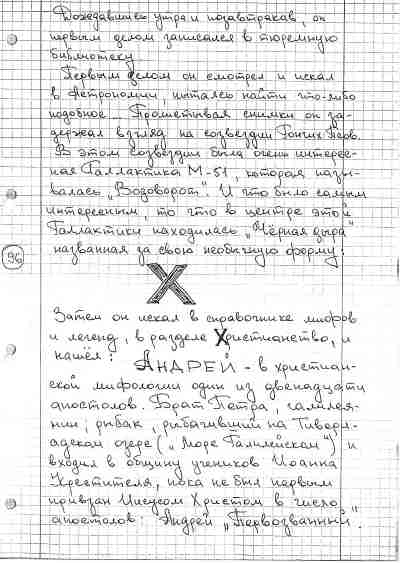 Дождавшись утра и позавтракав, он
первым делом записался в тюремную
библиотеку.
Первым делом он смотрел и искал
в Астрономии, пытаясь найти что-либо
подобное... Просматривая снимки он за-
держал взгляд на созвездии Гончих Псов.
В этом созвездии была очень интерес-
ная Галлактика М-51, которая назы-
валась „Водоворот“. И что было самым
интересным, то что в центре этой
Галлактики находилась „Чёрная дыра“
названная за свою необычную форму:
96
X
Затем он искал в справочнике мифов
и легенд, в разделе Христианство, и
нашёл: АНДРЕЙ - в христиан-
ской мифологии один из двенадцати
апостолов. Брат Петра, галилея-
нин, рыбак, рыбачивший на Тивери-
адском озере („Море Галилейском“) и
входил в общину учеников Иоанна
Крестителя, пока не был первым
призван Иисусом Христом в число
апостолов: Андрей „Первозванный“.